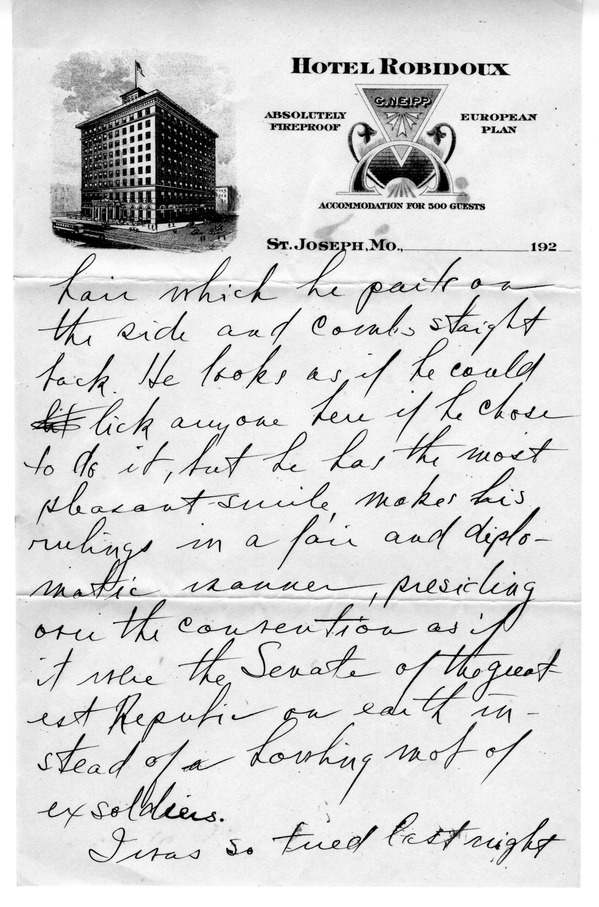 HOTEL ROBIDOUX
C. NEIPP
ABSOLUTELY
FIREPROOF
EUROPEAN
PLAN
ACCOMMODATION FOR 500 GUESTS
ST. JOSEPH, MO., 192
hair which he parts on
the side and combs staight
back. He looks as if he could
lick anyone here if he chose
to do it, but he has the most
pleasant smile, makes his
rulings in a fair and diplo-
matic manner, presiding
over the convention as if
it were the Senate of the great-
est Republic on earth in-
stead of a howling mob of
ex soldiers.
I was so tired last night